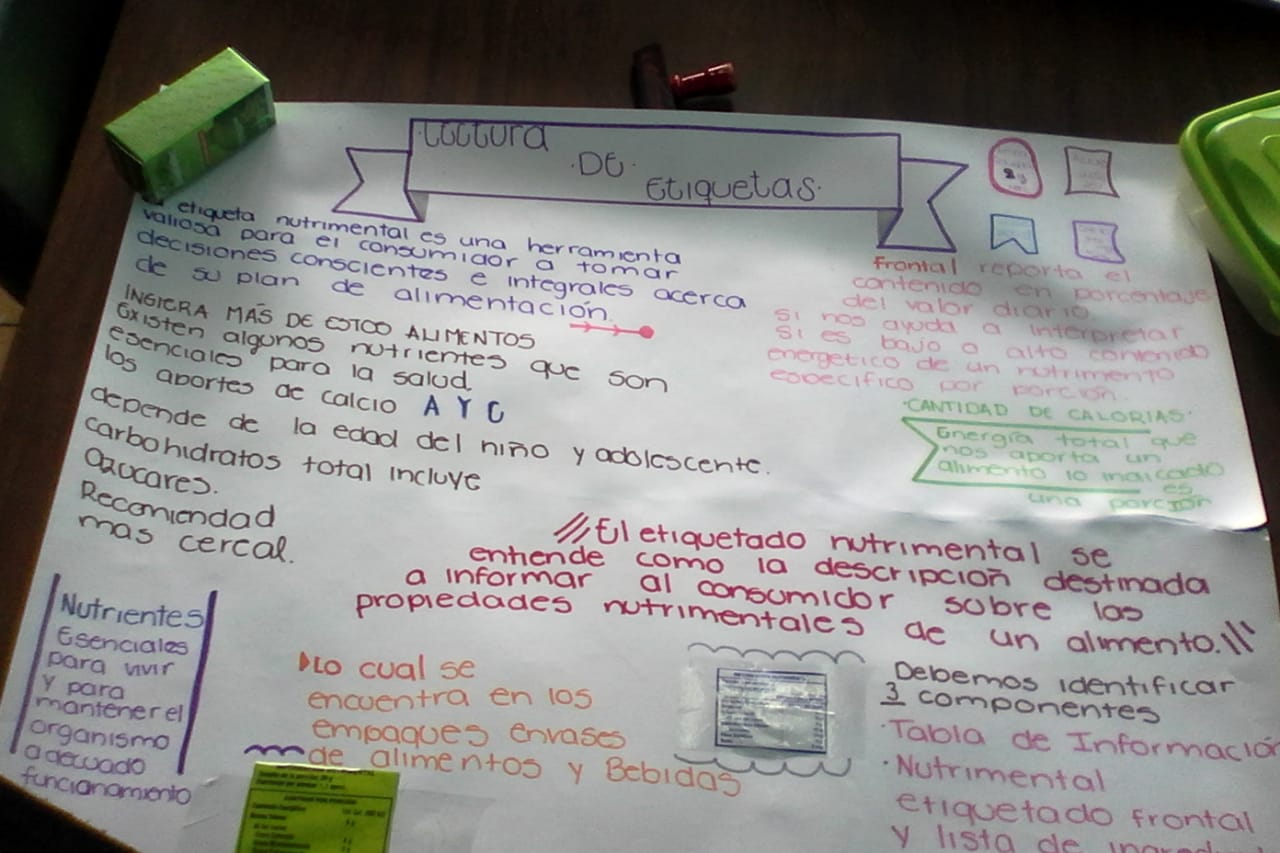 Lectura
·DE·
Etiquetas·
etiqueta nutrimental es una herramienta
valiosa para el consumidor a tomar
decisiones conscientes e integrales acerca
de su plan de alimentación.
INGIERA MÁS DE ESTOO ALIMENTOS
Existen algunos nutrientes que son
esenciales para la salud.
los aportes de calcio A Y C
depende de la edad del niño y adolescente.
carbohidratos total incluye
azucares.
Recomiendad
mas cercal.
Frontal reporta el
contenido en porcentaje
del valor diario
Si nos ayuda a interpretar
Si es bajo o alto contenido
energetico de un nutrimento
especifico por porción.
·CANTIDAD DE CALORIAS·
Energía total que
nos aporta un
alimento lo indicado
es
una porción
///El etiquetado nutrimental se
entiende como la descripción destinada
a informar al consumidor sobre las
propiedades nutrimentales de un alimento.\\\
Nutrientes
Esenciales
para vivir
y para
mantener el
organismo
adecuado
funcionamiento
Lo cual se
encuentra en los
empaques envases
de alimentos y Bebidas
Debemos identificar
3 componentes
·Tabla de Información
·Nutrimental
etiquetado frontal
y lista de